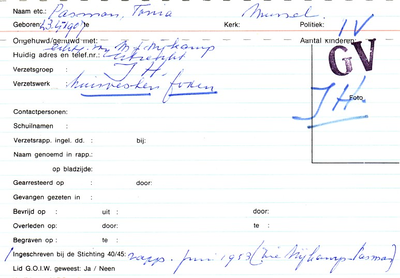 Naam etc.: Pasman, Tonia Mussel.
Geboren: 3.4.1907 te Kerk: Politiek: IV
Ongehuwd/gehuwd met: Aantal kinderen:
echtg. van M. J. Nijkamp GV
Huidig adres en telef.nr.: Utrecht
Verzetsgroep : J.H.
Verzetswerk : Foto JH
Contactpersonen:
Schuilnaam :
Verzetsrapp. ingel. dd. : bij:
Naam genoemd in rapp.:
op bladzijde:
Gearresteerd op : door:
Gevangen gezeten in :
Bevrijd op : uit : door:
Overleden op : door: te :
Begraven op : te :
Ingeschreven bij de Stichting 40/45: rapp. Juni 1953 (Zie Nijkamp-Pasman)
Lid G.O.I.W. geweest: Ja / Neen